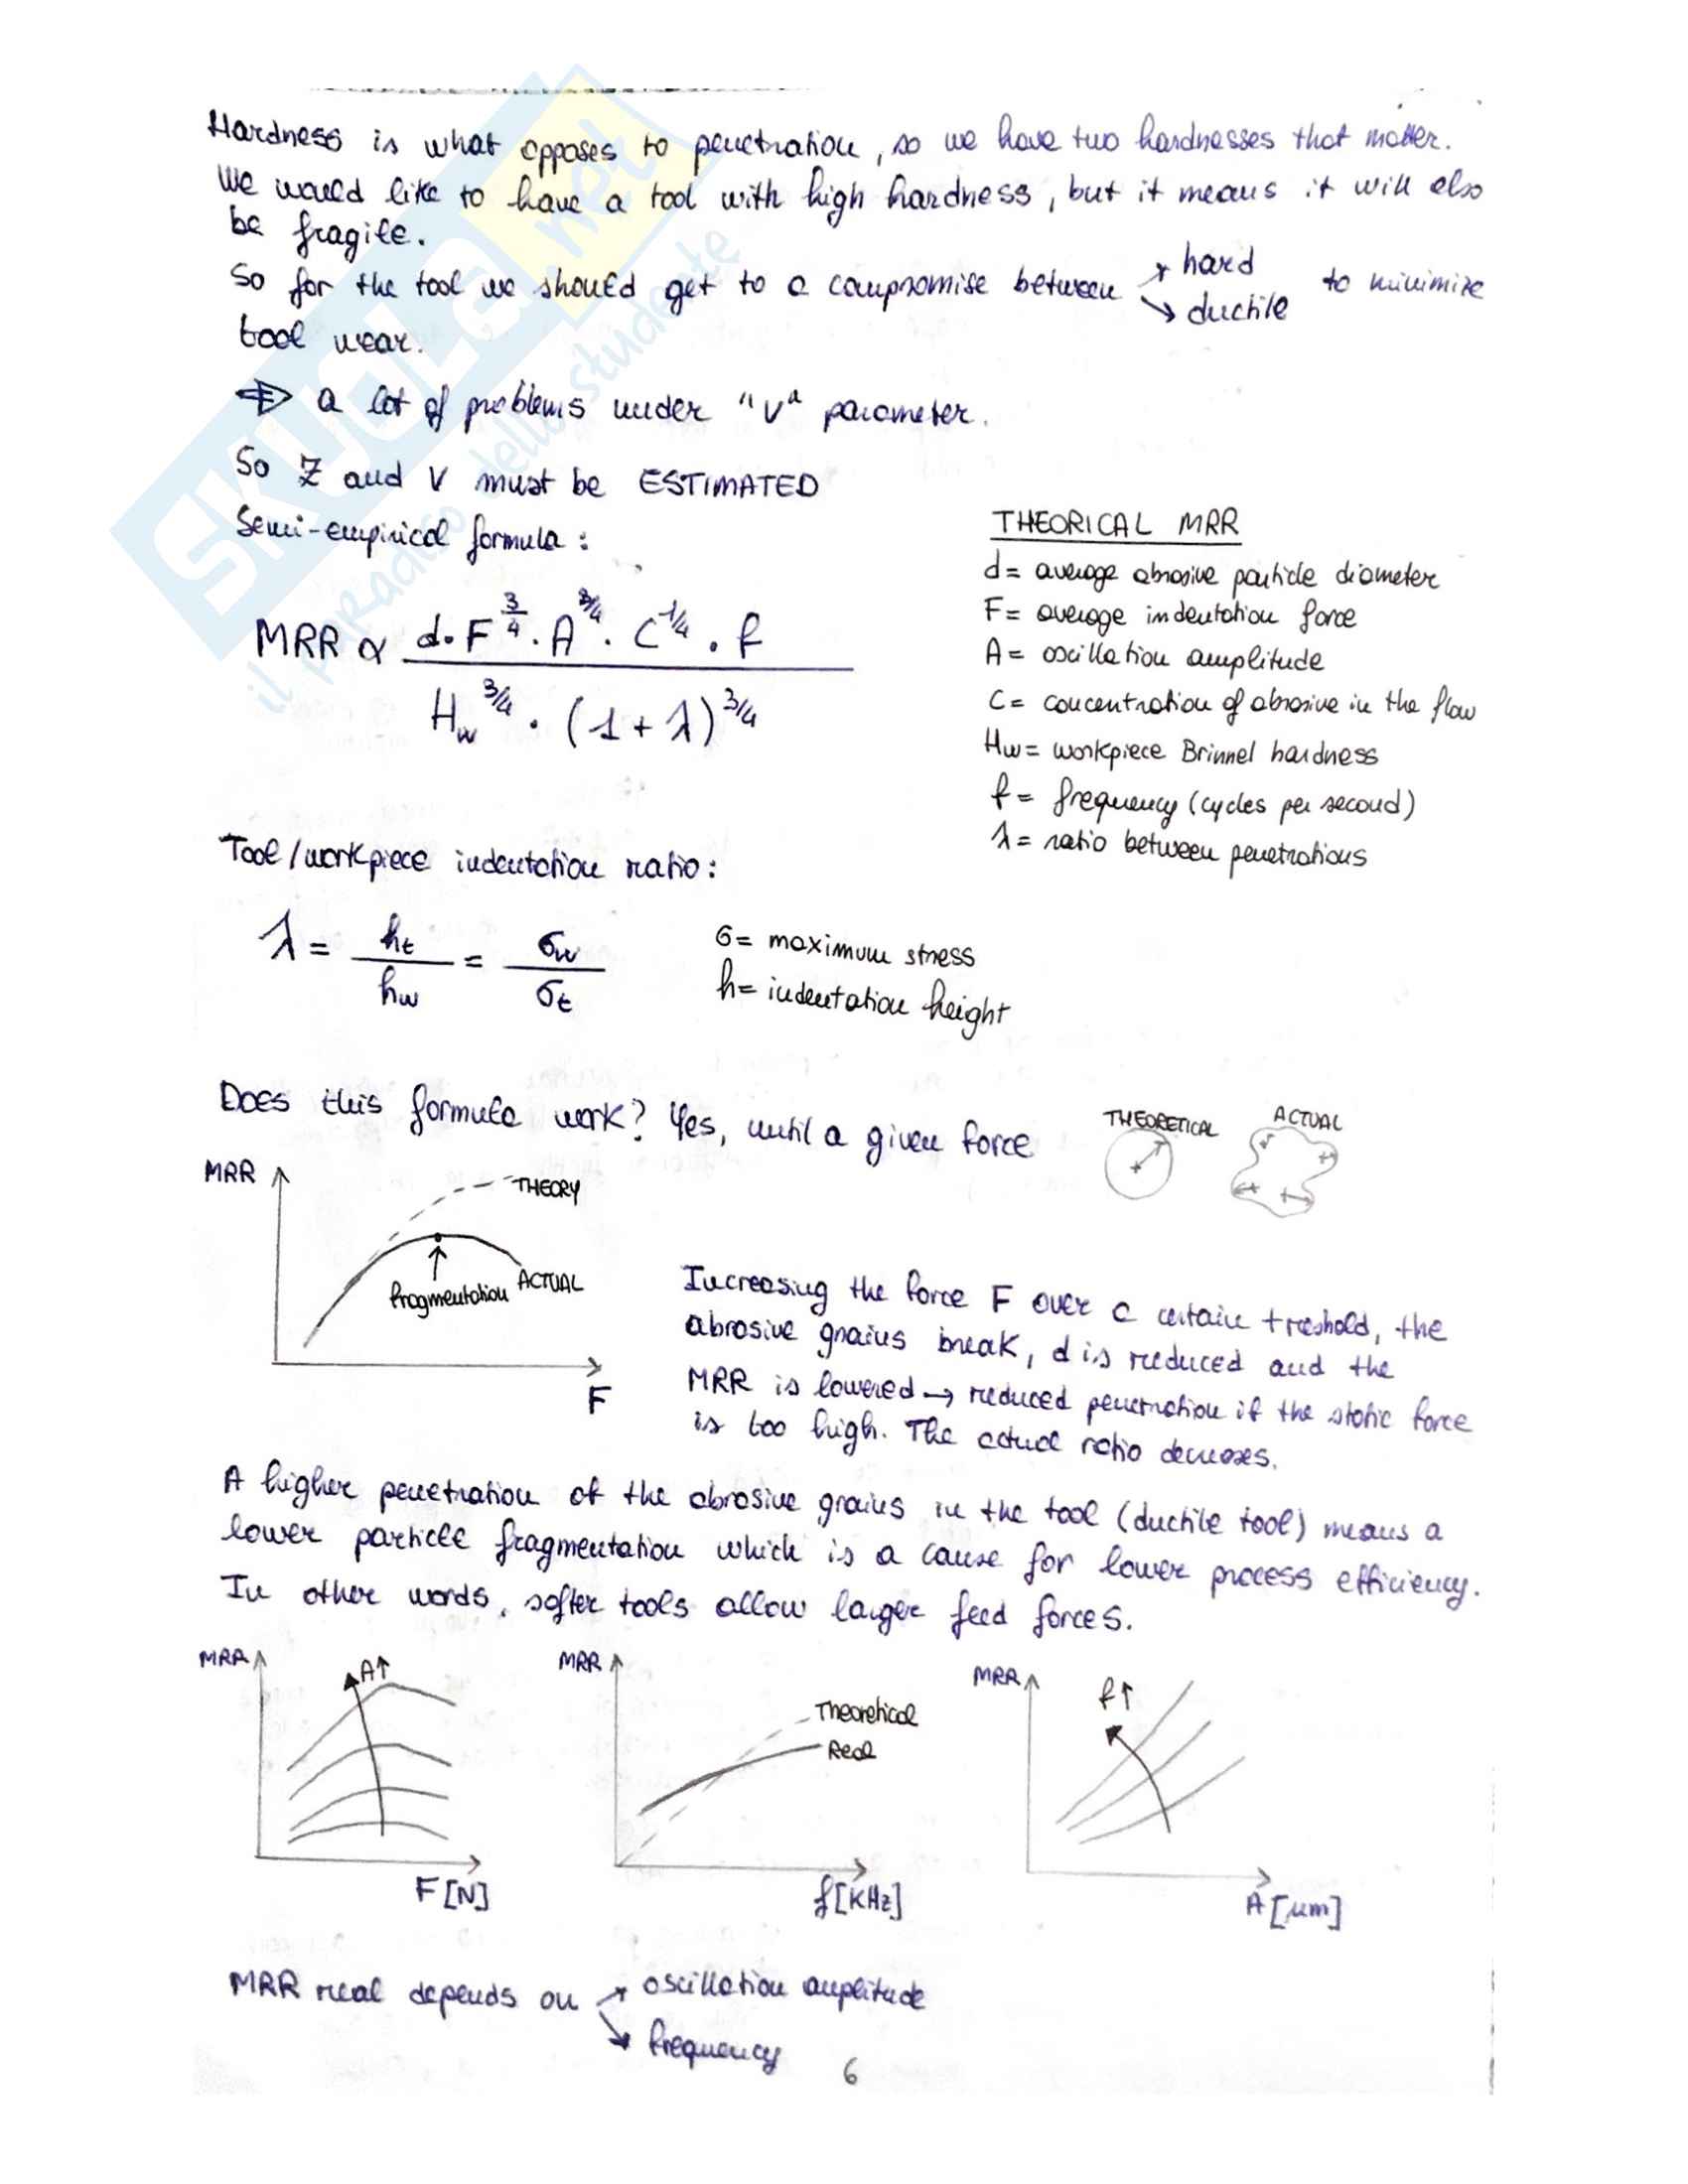 Hardness is what opposes to penetration, so we have two hardnesses that matter.
We would like to have a tool with high hardness, but it means it will also
be fragile.
So for the tool we should get to a compromise between → hard → ductile to minimize
tool wear.
⇒ a lot of problems under "V" parameter.
So Z and V must be ESTIMATED
Semi-empirical formula:
MRR ∝ d·F^3/4 · A^3/4 · C^1/4 · f / H_w^3/4 · (1+λ)^3/4
THEORICAL MRR
d= average abrasive particle diameter
F= average indentation force
A= oscillation amplitude
C= concentration of abrasive in the flow
Hw= workpiece Brinnel hardness
f= frequency (cycles per second)
λ= ratio between penetrations
Tool/workpiece indentation ratio:
λ = h_t / h_w = σ_w / σ_t
σ= maximum stress
h= indentation height
Does this formula work? Yes, until a given force
THEORETICAL
ACTUAL
MRR
THEORY
fragmentation
ACTUAL
F
Increasing the force F over a certain treshold, the
abrasive grains break, d is reduced and the
MRR is lowered → reduced penetration if the static force
is too high. The actual ratio decreases.
A higher penetration of the abrasive grains in the tool (ductile tool) means a
lower particle fragmentation which is a cause for lower process efficiency.
In other words, softer tools allow larger feed forces.
MRR
A↑
F[N]
MRR
Theoretical
Real
f[KHz]
MRR
f↑
A[μm]
MRR real depends on → oscillation amplitude
→ frequency
6
SKUOLA.net
il paradiso dello studente